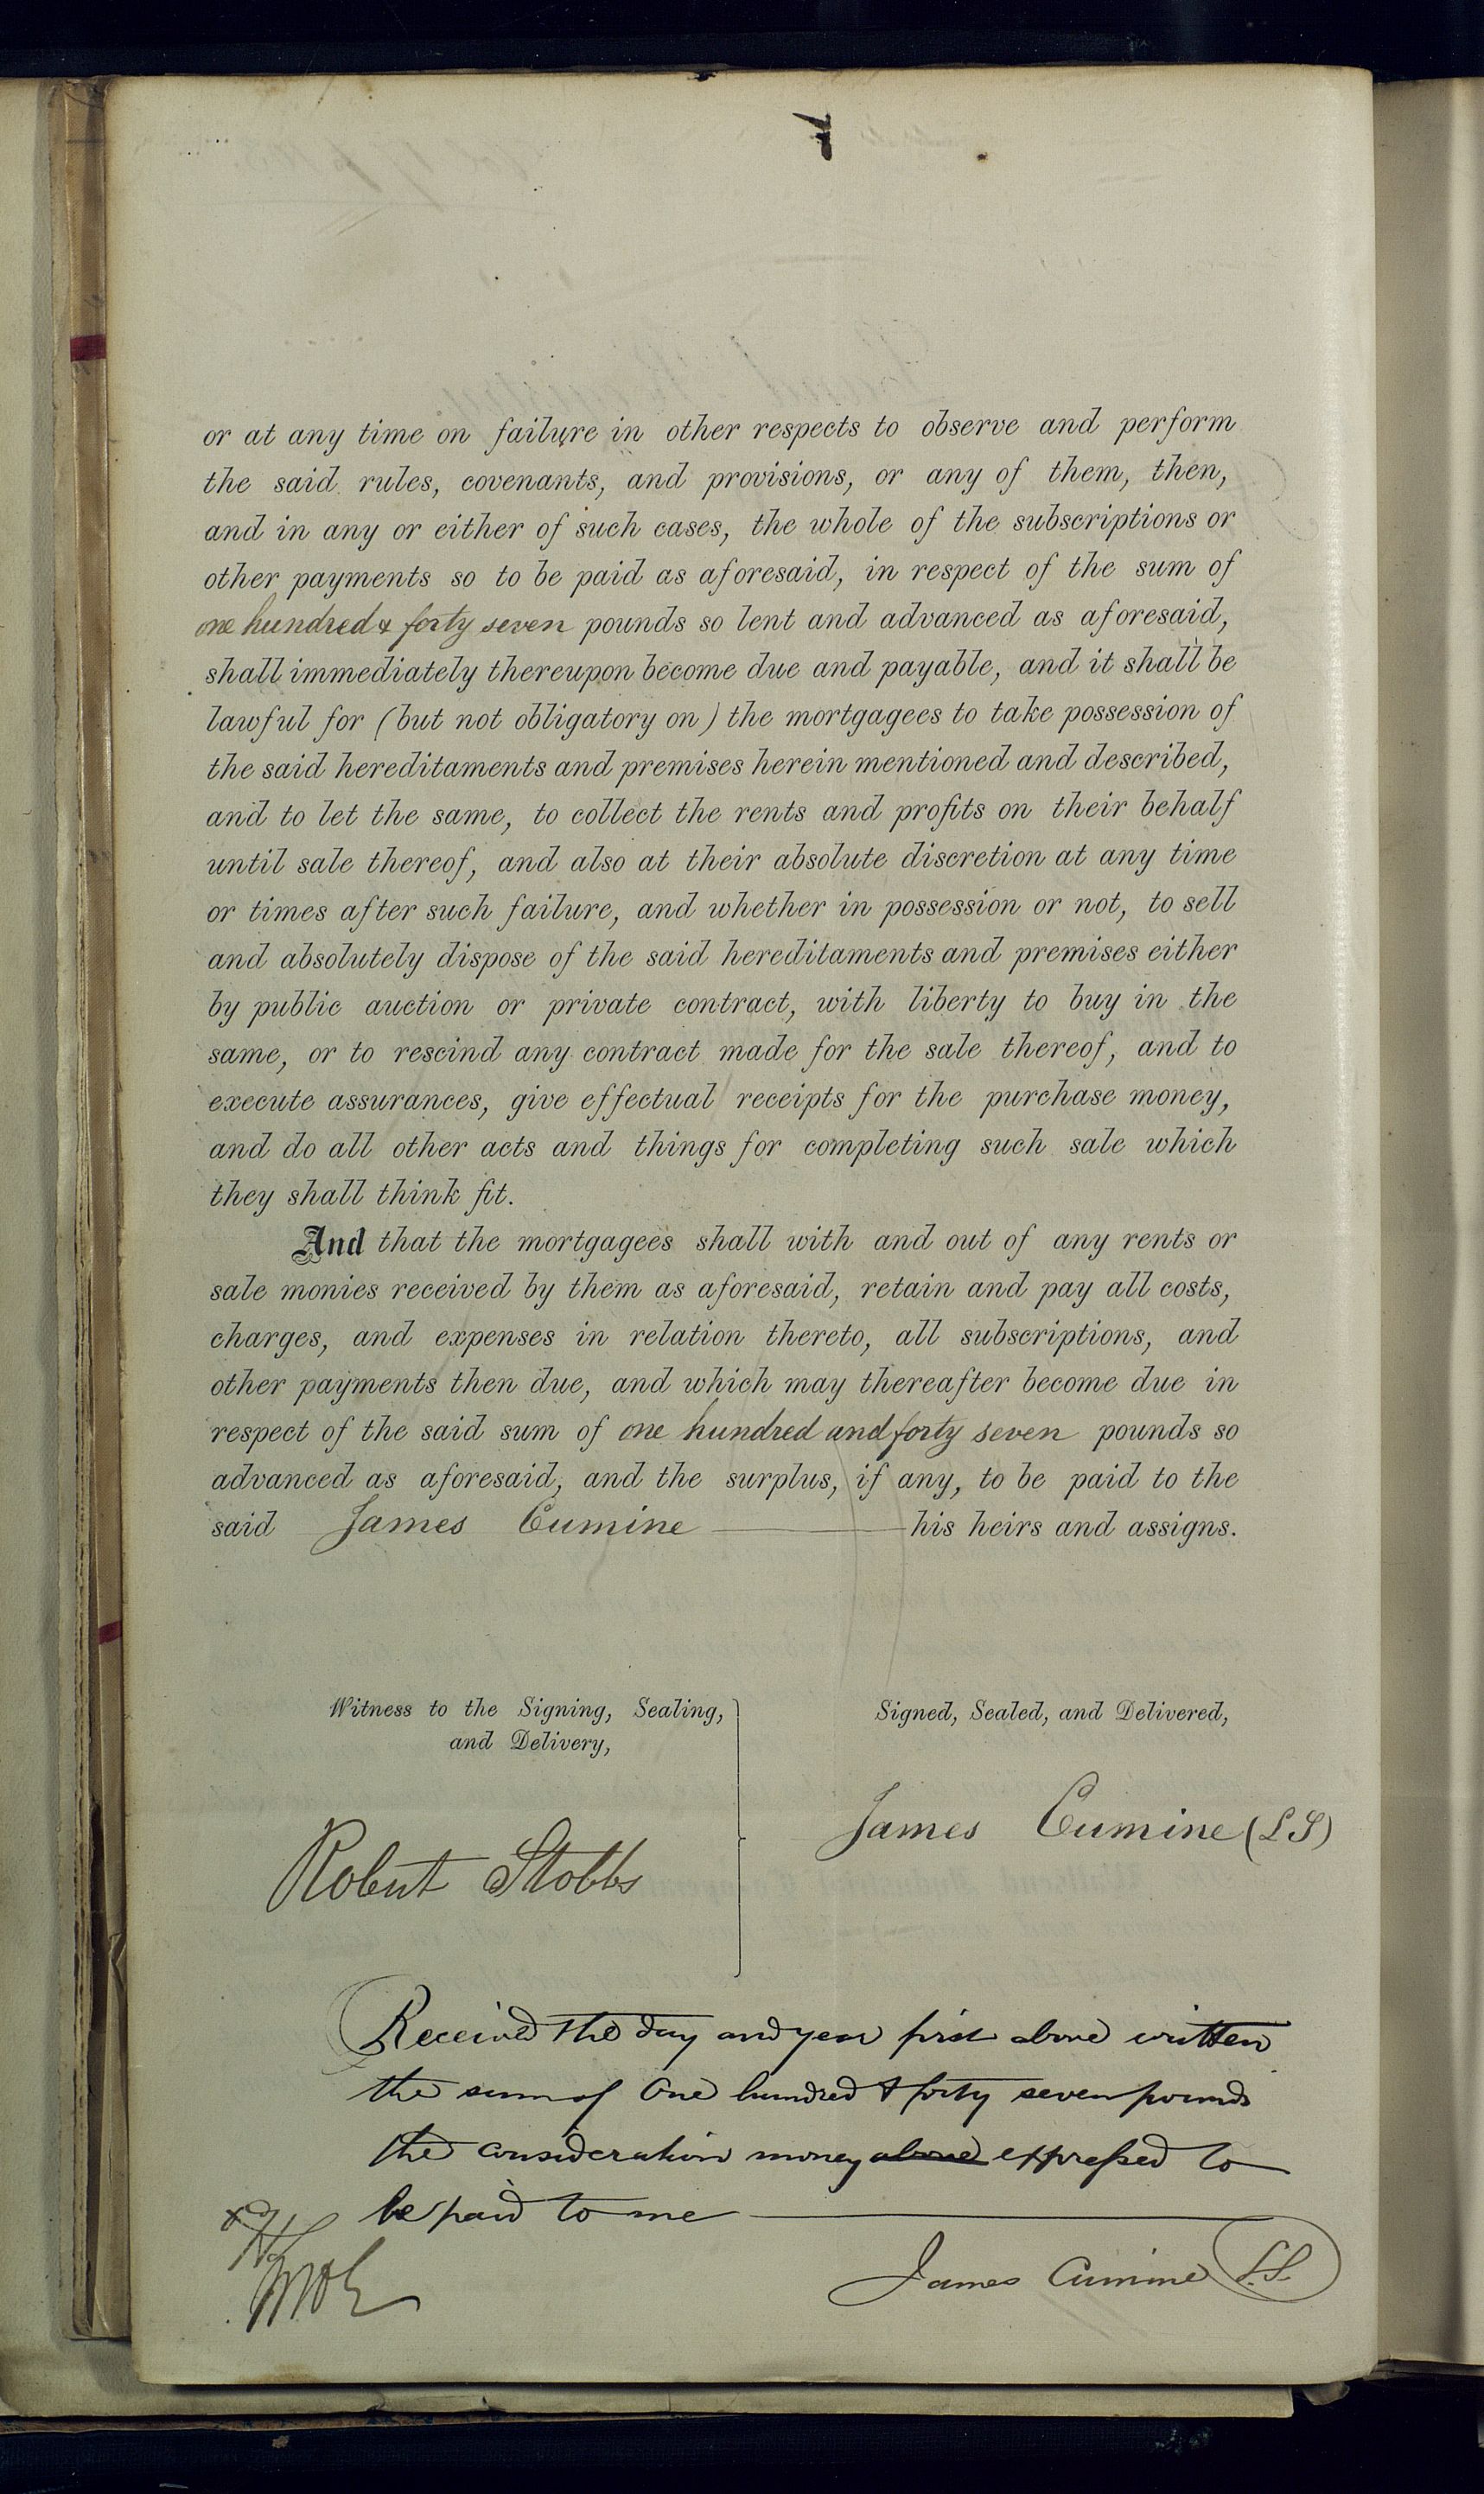 or at any time on failure in other respects to observe and perform
the said rules, covenants, and provisions, or any of them, then,
and in any or either of such cases, the whole of the subscriptions or
other payments so to be paid as aforesaid, in respect of the sum of
one hundred & forty seven pounds so lent and advanced as aforesaid,
shall immediately thereupon become due and payable, and it shall be
lawful for (but not obligatory on) the mortgagees to take possession of
the said hereditaments and premises herein mentioned and described,
and to let the same, to collect the rents and profits on their behalf
until sale thereof, and also at their absolute discretion at any time
or times after such failure, and whether in possession or not, to sell
and absolutely dispose of the said hereditaments and premises either
by public auction or private contract, with liberty to buy in the
same, or to rescind any contract made for the sale thereof, and to
execute assurances, give effectual receipts for the purchase money,
and do all other acts and things for completing such sale which
they shall think fit.
And that the mortgagees shall with and out of any rents or
sale monies received by them as aforesaid, retain and pay all costs,
charges, and expenses in relation thereto, all subscriptions, and
other payments then due, and which may thereafter become due in
respect of the said sum of one hundred and forty seven pounds so
advanced as aforesaid, and the surplus, if any, to be paid to the
said James Cumine his heirs and assigns.
Witness to the Signing, Sealing,
and Delivery,
Robert Stobbs
Signed, Sealed, and Delivered,
James Cumine (LS)
Received the day and year first above written
the sum of One hundred & forty seven pounds
the consideration money above expressed to
be paid to me
James Cumine L.S.